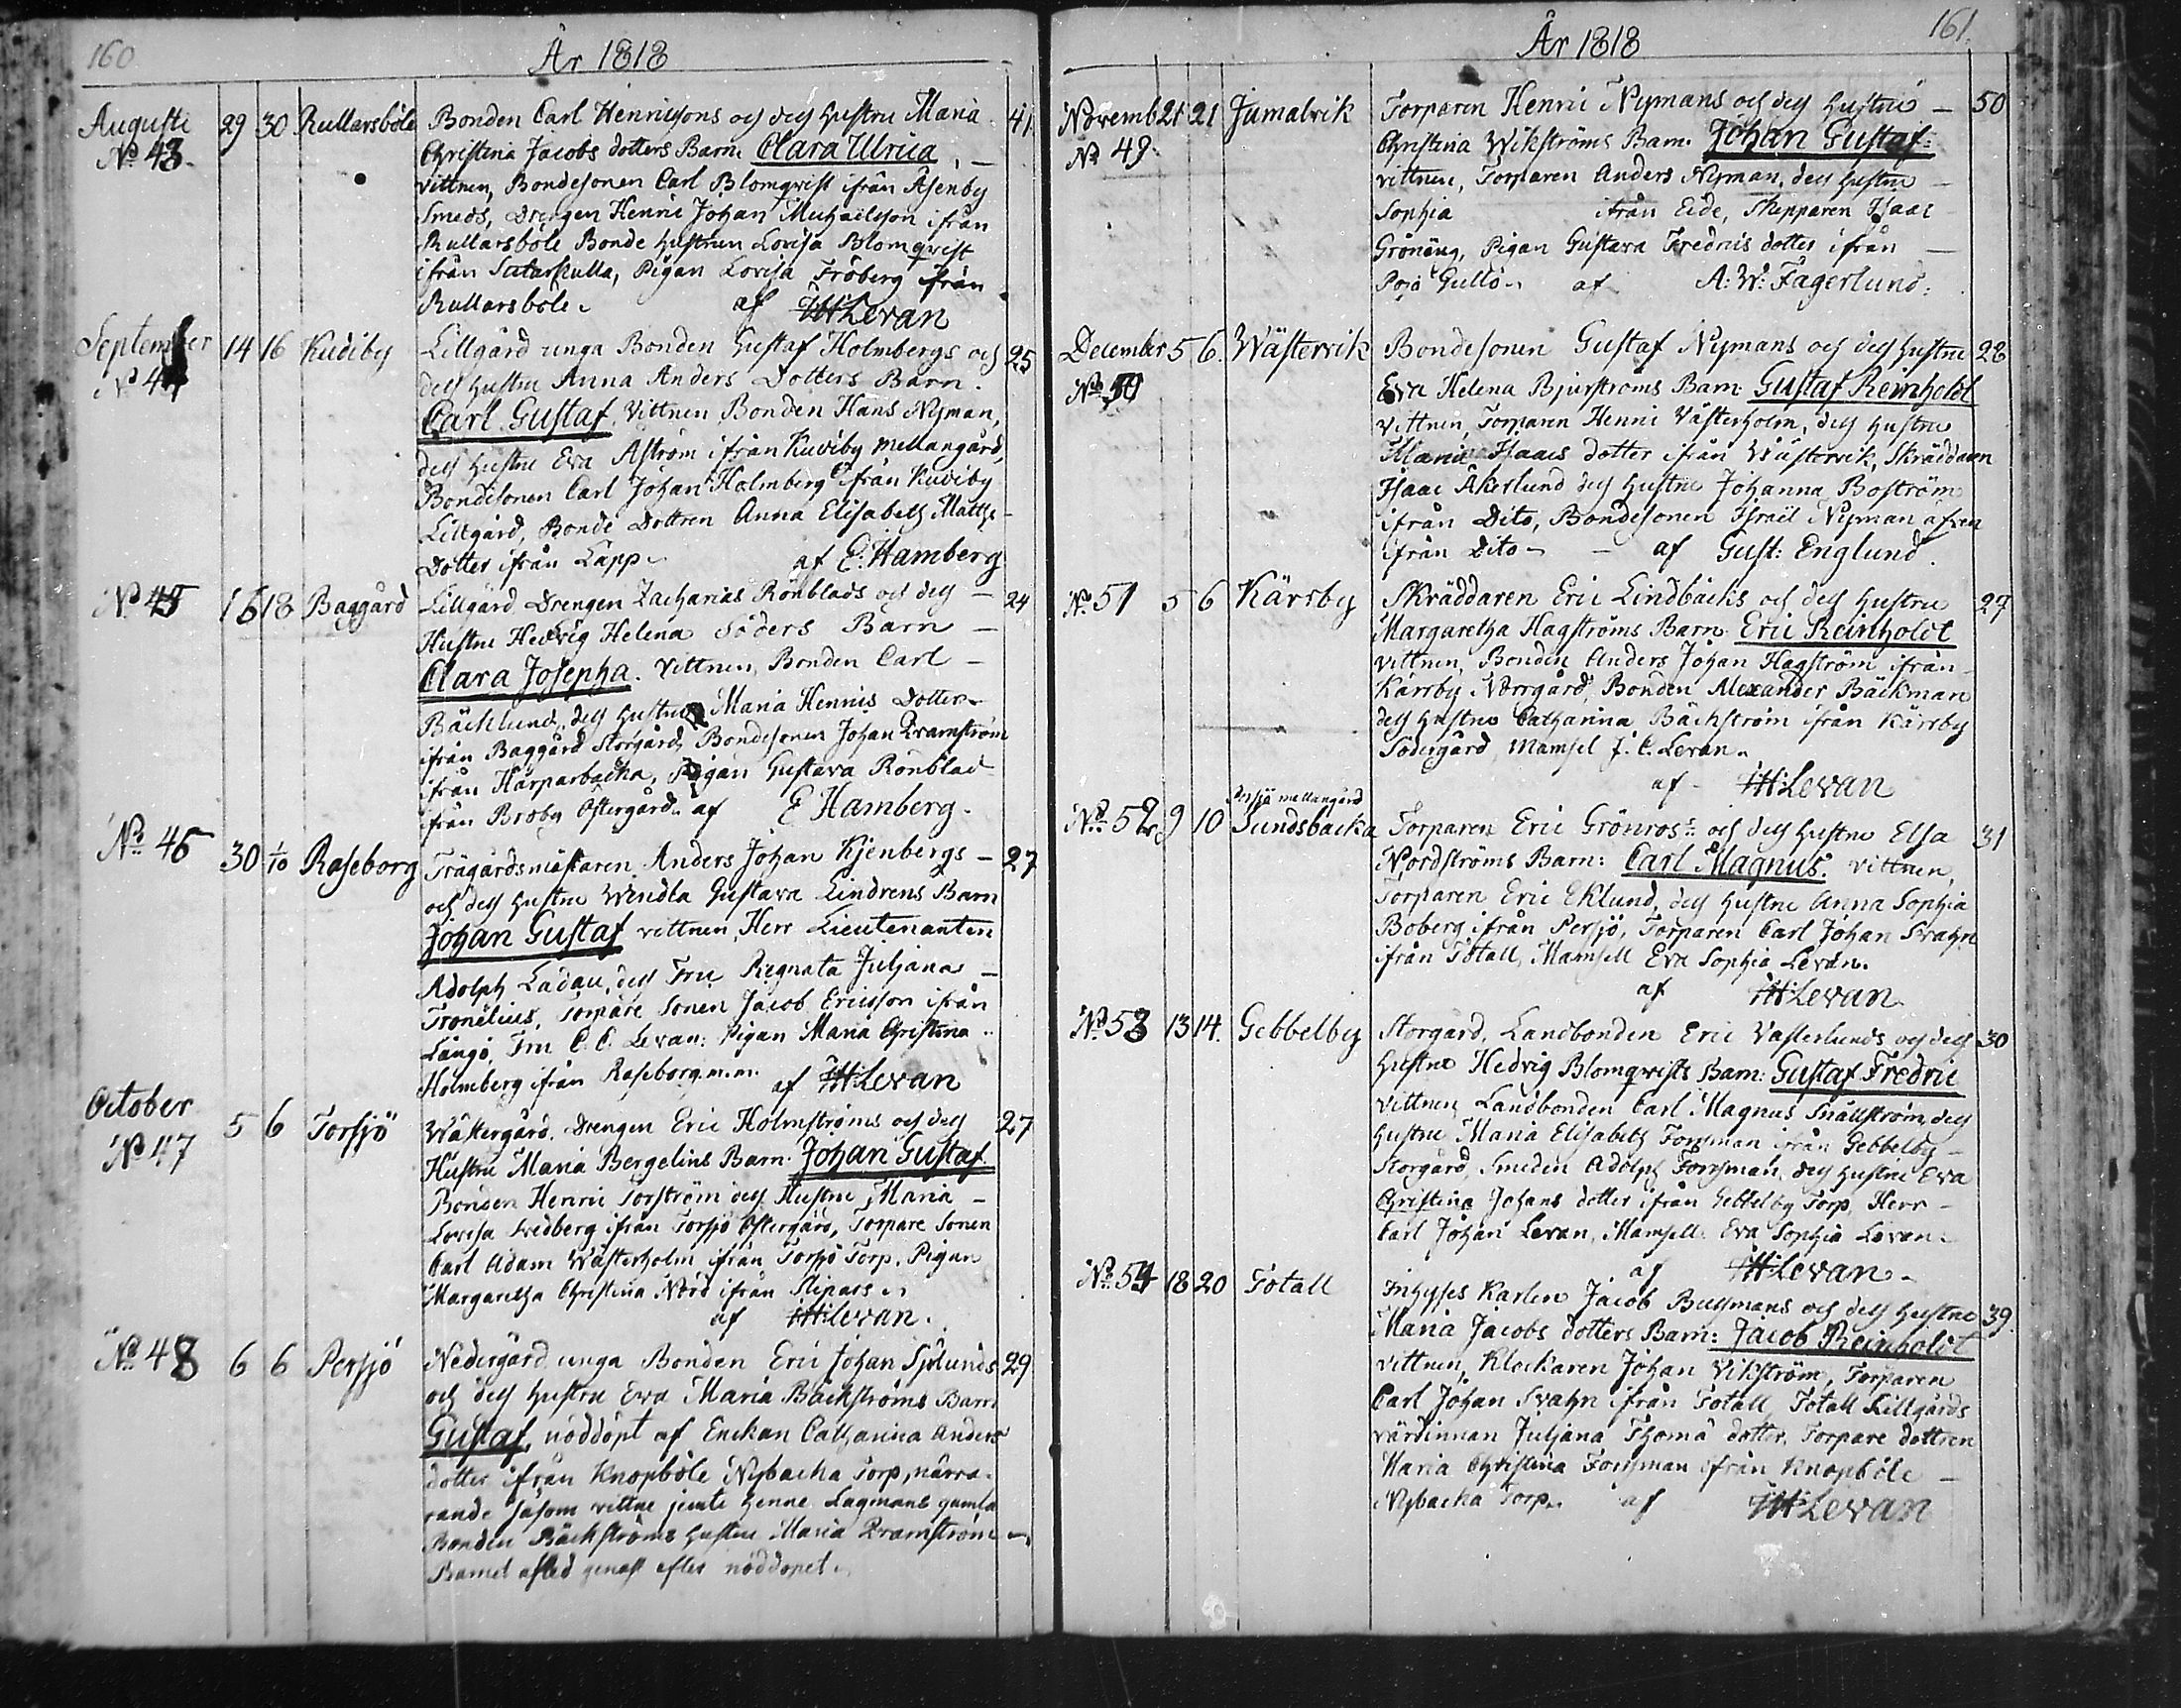 160
År 1818
Augusti
No 43.
29 30 Rullarsböle
Bonden Carl Henricsons och dess hustru Maria 41
Christina Jacobs dotters Barn Clara Ulrica, —
vittnen, Bondesonen Carl Blomqvist ifrån Åsenby
Smeds, Drengen Henric Johan Michaelsson ifrån
Rullarsböle Bonde hustrun Lovisa Blomqvist
ifrån, Pigan Lovisa Fröberg ifrån
Rullarsböle. af Levan
September
No 44
14 16 Kudiby
Lillgård unga Bonden Gustaf Holmbergs och 25
dess hustru Anna Anders Dotters Barn.
Carl Gustaf. Vittnen Bonden Hans Nyman,
dess hustru Eva Åström ifrån Kuviby mellangård,
Bondesonen Carl Johan Holmberg ifrån Kuviby
Lillgård, Bonde Dottren Anna Elisabeth Matts
Dotter ifrån Lapp. af E. Hamberg
No 45 16 18 Baggård
Lillgård Drengen Zacharias Rönblads och dess — 24
Hustru Hedvig Helena Söders Barn —
Clara Josepha. Vittnen, Bonden Carl —
Bäcklund, dess hustru Maria Henrics Dotter
ifrån Baggård Storgård, Bondesonen Johan Qvarnström
ifrån Harparbacka, Pigan Gustava Rönblad
ifrån Broby Östergård. af E Hamberg.
No 46 30 1/10 Raseborg
Trägårdsmästaren Anders Johan Kjenbergs — 27
och dess hustru Wendla Gustava Lindrens Barn
Johan Gustaf vittnen, Herr Lieutenanten
Adolph Ladau, dess Fru Regnata Juliana —
Tronelius, Torpare Sonen Jacob Ericsson ifrån
Långö, Fru C. C. Levan: Pigan Maria Christina
Holmberg ifrån Raseborg m.m. af Levan
October
No 47
5 6 Torsjö
Wästergård. Drengen Eric Holmströms och dess 27
Hustru Maria Bergelins Barn. Johan Gustaf.
Bonden Henric Torström dess Hustru Maria —
Lovisa Fredberg ifrån Torsjö Östergård, Torpare Sonen
Carl Adam Wästerholm ifrån Torsjö Torp, Pigan
Margaretha Christina Nord ifrån Slipars
af Levan.
No 48 6 6 Persjö
Nedergård unga Bonden Eric Johan Sjölunds 29
och dess hustru Eva Maria Bäckströms Barn
Gustaf, nöddöpt af Enckan Catharina Anders
dotter ifrån Knopböle Nybacka Torp, närva-
rande såsom vittne jemte henne Lagmans gamla
Bonden Bäckströms hustru Maria Qvarnström
Barnet afled genast efter nöddopet.
161.
År 1818
Novemb
No 49.
21 21 Jumalvik
Torparen Henric Nymans och dess hustru — 50
Christina Wikströms Barn. Johan Gustaf:
vittnen, Torparen Anders Nyman, dess hustru —
Sophia ifrån Eide, Skepparen Isaac
Grönäng, Pigan Gustava Fredrics dotter ifrån —
Pojo Gullö. af A: W: Fagerlund.
December
No 50
5 6. Wästervik
Bondesonen Gustaf Nymans och dess hustru 28
Eva Helena Bjurströms Barn Gustaf Reinholdt
Vittnen, Torparen Henric Västerholm, dess hustru
Maria Isaacs dotter ifrån Wästervik, Skräddaren
Isaac Åkerlund dess hustru Johanna Boström
ifrån Dito, Bondesonen Israël Nyman äfven
ifrån Dito — — af Gust: Englund.
No 51 5 6 Kärrby
Skräddaren Eric Lindbäcks och dess hustru 27
Margaretha Hagströms Barn Eric Reinholdt
vittnen, Bonden Anders Johan Hagström ifrån
Kärrby Norrgård, Bonden Alexander Bäckman
dess hustru Catharina Bäckström ifrån Kärrby
Södergård, Mamsel J. C. Levan.
af Levan
No 52 9 10 Persjö mellangård
Sundsbacka
Torparen Eric Grönros:s och dess hustru Elsa 31
Nordströms Barn: Carl Magnus. Vittnen,
Torparen Eric Eklund, dess hustru Anna Sophia
Boberg ifrån Persjö, Torparen Carl Johan Svahn
ifrån Totall, Mamsell Eva Sophia Levan.
af Levan
No 53 13 14. Gebbelby
Storgård, Landbonden Eric Vasterlunds och dess 30
Hustru Hedvig Blomqvists Barn: Gustaf Fredric
Vittnen Landbonden Carl Magnus Snällström, dess
hustru Maria Elisabeth Forsman ifrån Gebbelby
Storgård, Smeden Adolph Forsman, dess hustru Eva
Christina Johans dotter ifrån Gebbelby Torp, Herr —
Carl Johan Levan, Mamsell Eva Sophia Levan.
af Levan
No 54 18 20 Totall
Inhyses Karlen Jacob Bussmans och dess hustru 39.
Maria Jacobs dotters Barn: Jacob Reinholdt
vittnen, Klockaren Johan Vikström, Torparen
Carl Johan Svahn ifrån Totall, Totall Lillgårds
värdinnan Juliana Thoma dotter, Torpare dottren
Maria Christina Forsman ifrån Knopböle —
Nybacka Torp. af Levan